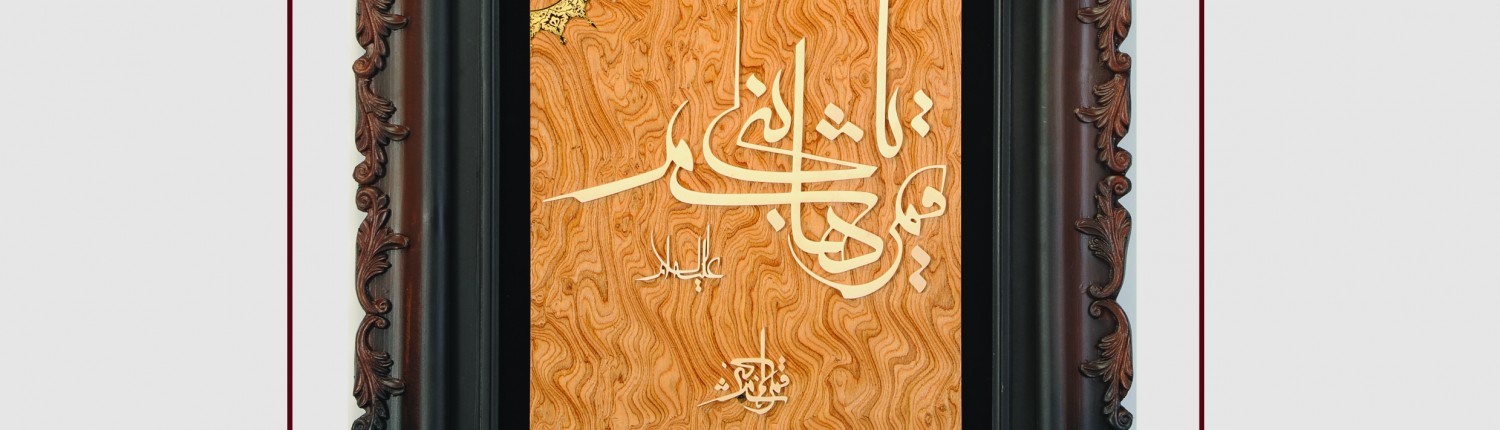 یا قمر بنی هاشم
علیه السلام